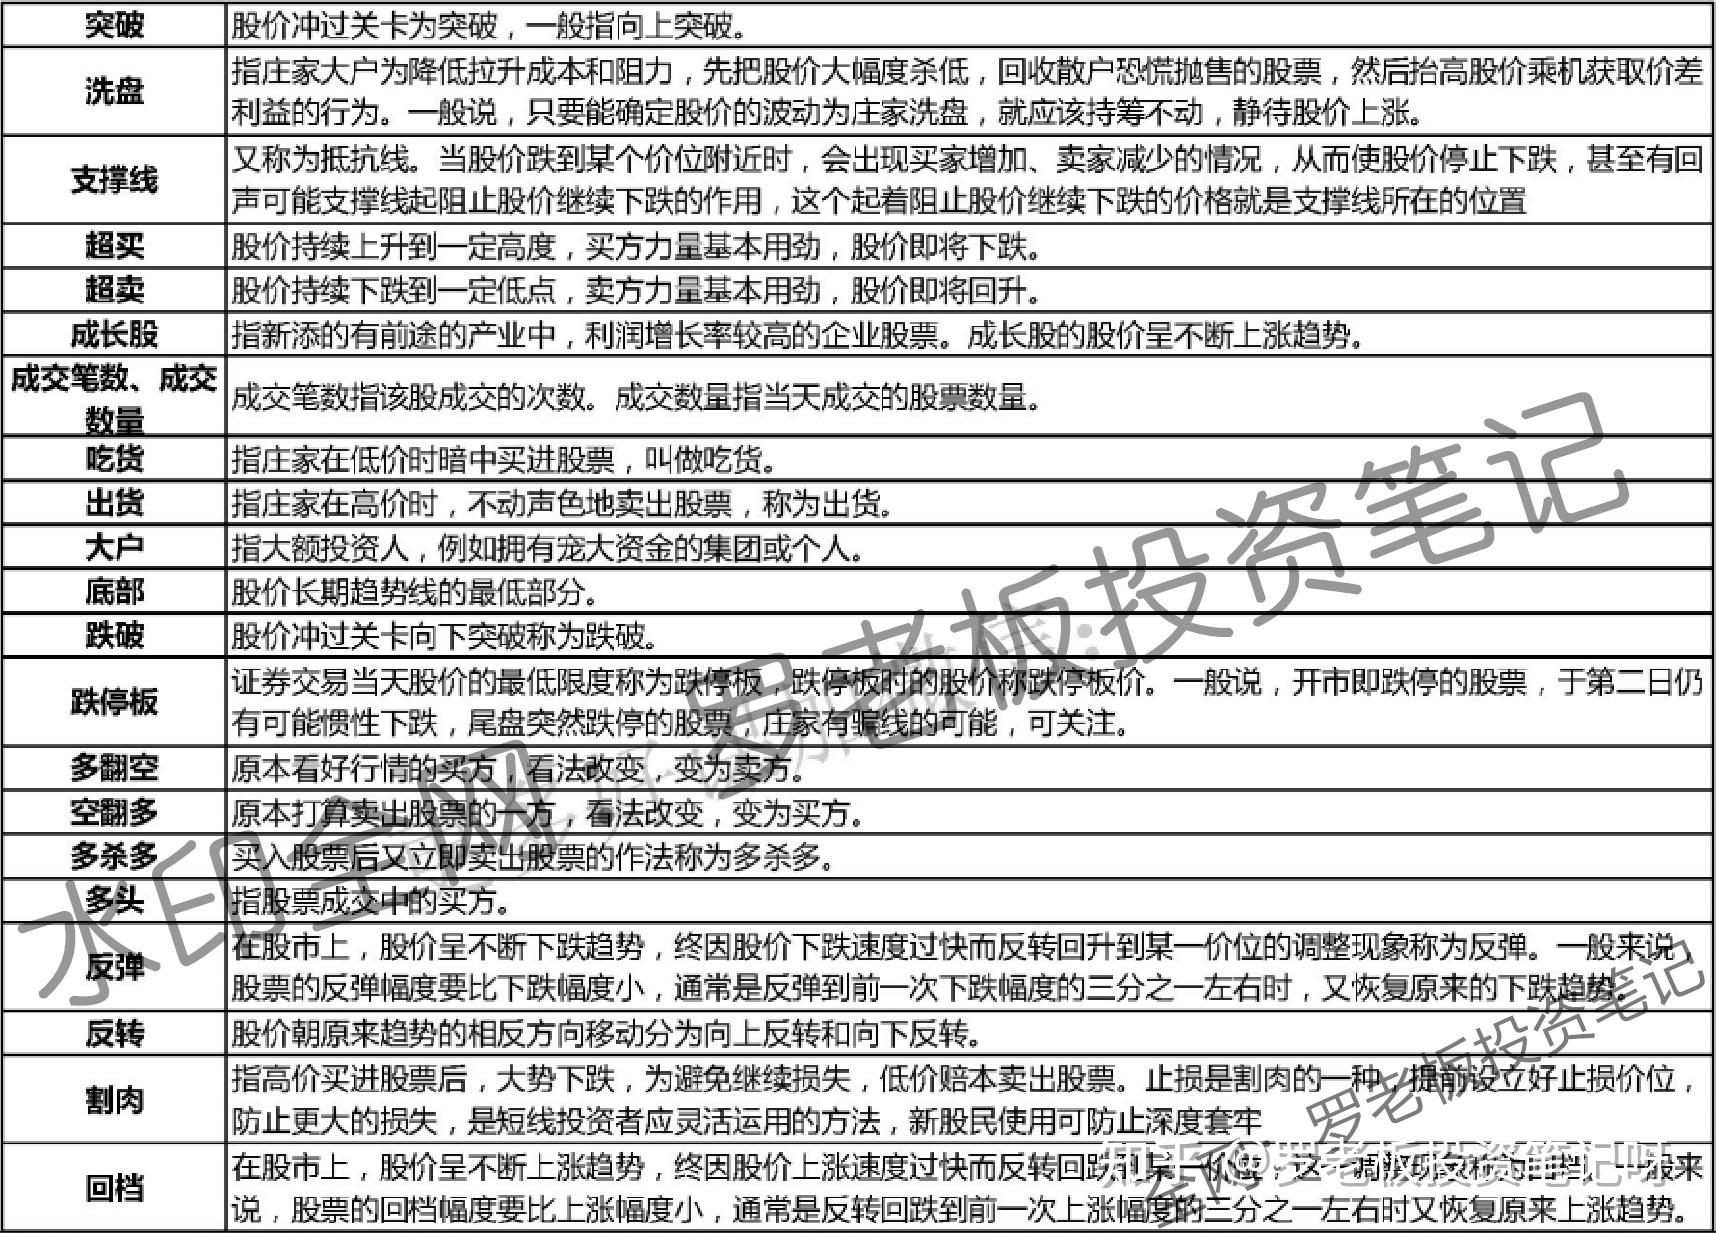 突破 股价冲过关卡为突破，一般指向上突破。
洗盘 指庄家大户为降低拉升成本和阻力，先把股价大幅度杀低，回收散户恐慌抛售的股票，然后抬高股价乘机获取价差
利益的行为。一般说，只要能确定股价的波动为庄家洗盘，就应该持筹不动，静待股价上涨。
支撑线 又称为抵抗线。当股价跌到某个价位附近时，会出现买家增加、卖家减少的情况，从而使股价停止下跌，甚至有回
声可能支撑线起阻止股价继续下跌的作用，这个起着阻止股价继续下跌的价格就是支撑线所在的位置
超买 股价持续上升到一定高度，买方力量基本用劲，股价即将下跌。
超卖 股价持续下跌到一定低点，卖方力量基本用劲，股价即将回升。
成长股 指新添的有前途的产业中，利润增长率较高的企业股票。成长股的股价呈不断上涨趋势。
成交笔数、成交
数量
成交笔数指该股成交的次数。成交数量指当天成交的股票数量。
吃货 指庄家在低价时暗中买进股票，叫做吃货。
出货 指庄家在高价时，不动声色地卖出股票，称为出货。
大户 指大额投资人，例如拥有宠大资金的集团或个人。
底部 股价长期趋势线的最低部分。
跌破 股价冲过关卡向下突破称为跌破。
跌停板 证券交易当天股价的最低限度称为跌停板，跌停板时的股价称跌停板价。一般说，开市即跌停的股票，于第二日仍
有可能惯性下跌，尾盘突然跌停的股票，庄家有骗线的可能，可关注。
多翻空 原本看好行情的买方，看法改变，变为卖方。
空翻多 原本打算卖出股票的一方，看法改变，变为买方。
多杀多 买入股票后又立即卖出股票的作法称为多杀多。
多头 指股票成交中的买方。
反弹 在股市上，股价呈不断下跌趋势，终因股价下跌速度过快而反转回升到某一价位的调整现象称为反弹。一般来说，
股票的反弹幅度要比下跌幅度小，通常是反弹到前一次下跌幅度的三分之一左右时，又恢复原来的下跌趋势。
反转 股价朝原来趋势的相反方向移动分为向上反转和向下反转。
割肉 指高价买进股票后，大势下跌，为避免继续损失，低价赔本卖出股票。止损是割肉的一种，提前设立好止损价位，
防止更大的损失，是短线投资者应灵活运用的方法，新股民使用可防止深度套牢
回档 在股市上，股价呈不断上涨趋势，终因股价上涨速度过快而反转回跌到某一价位，这一调整现象称为回档。一般来
说，股票的回档幅度要比上涨幅度小，通常是反转回跌到前一次上涨幅度的三分之一左右时又恢复原来上涨趋势。
水印全网
罗老板投资笔记
罗老板投资笔记
知乎 @罗老板投资笔记呀